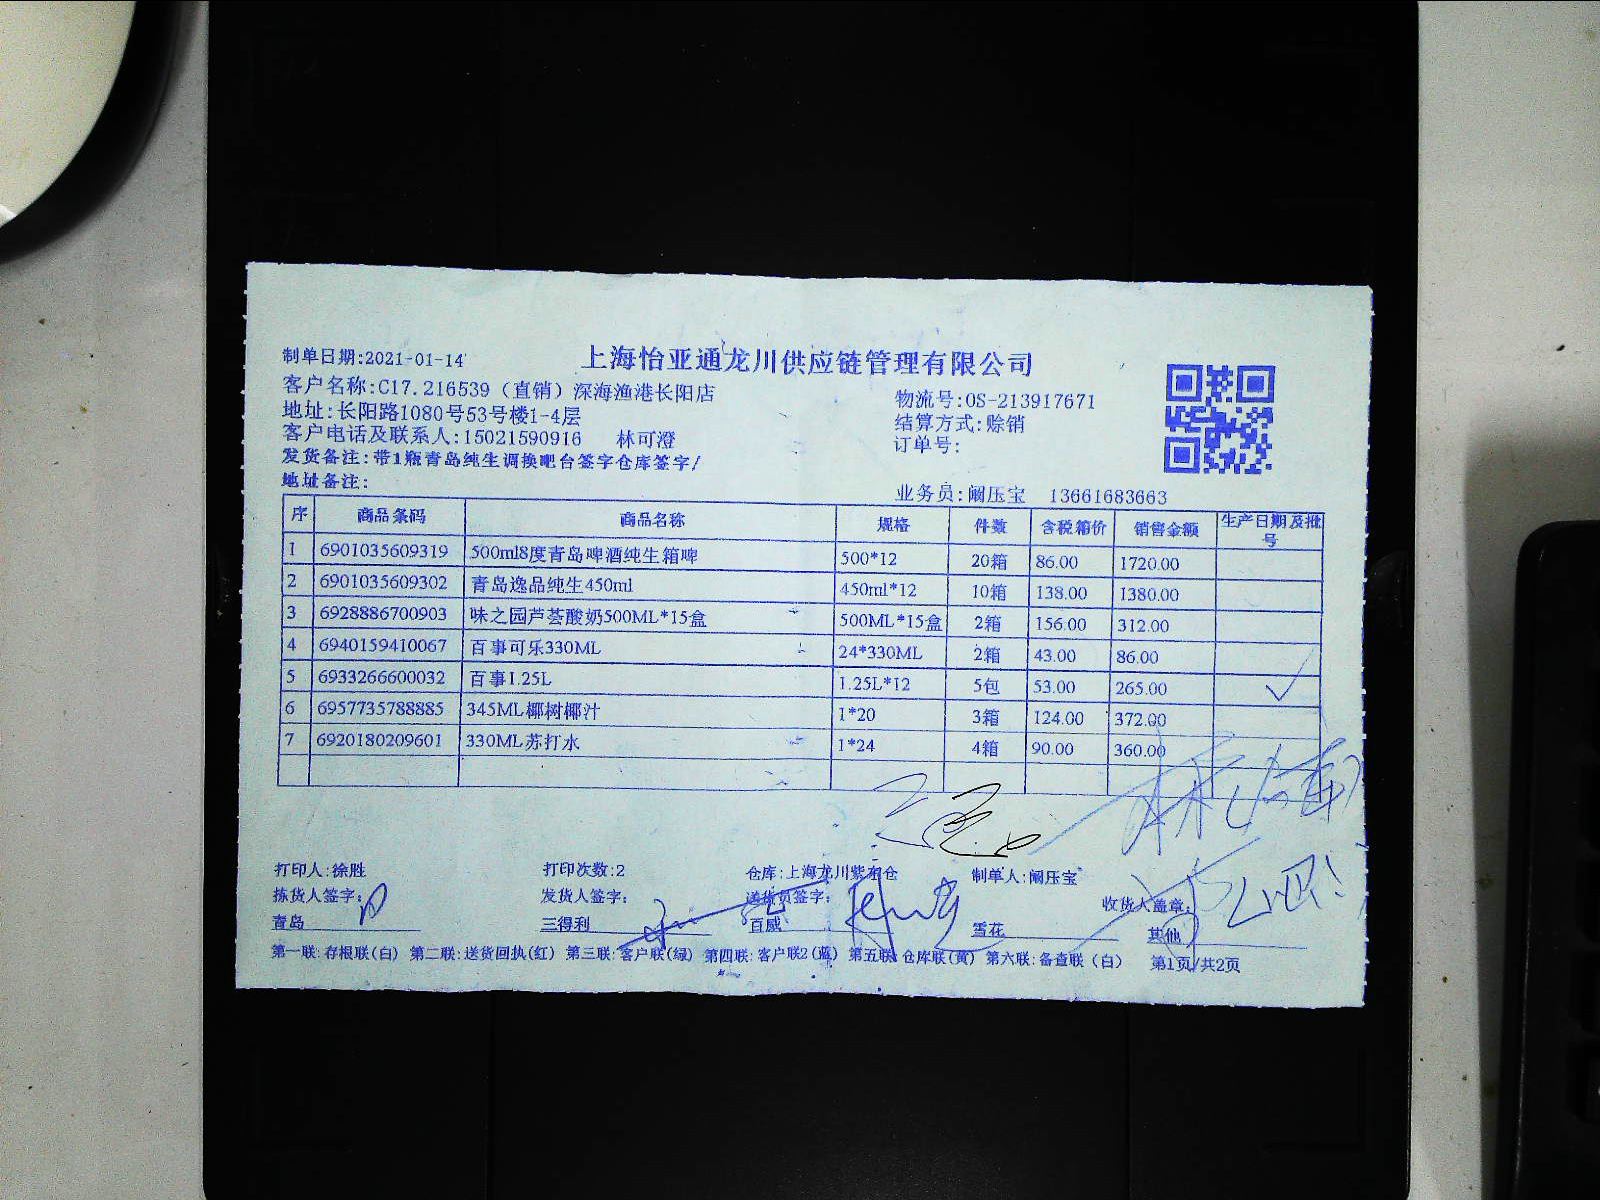 上海怡亚通龙川供应链管理有限公司
制单日期:2021-01-14
客户名称:C17.216539（直销）深海渔港长阳店
物流号:OS-213917671
地址:长阳路1080号53号楼1-4层
结算方式:赊销
客户电话及联系人:15021590916 林可澄
订单号:
发货备注:带1瓶青岛纯生调换吧台签字仓库签字/
地址备注:
业务员:阚压宝 13661683663
序 商品条码 商品名称 规格 件数 含税箱价 销售金额 生产日期及批号
1 6901035609319 500ml8度青岛啤酒纯生箱啤 500*12 20箱 86.00 1720.00
2 6901035609302 青岛逸品纯生450ml 450ml*12 10箱 138.00 1380.00
3 6928886700903 味之园芦荟酸奶500ML*15盒 500ML*15盒 2箱 156.00 312.00
4 6940159410067 百事可乐330ML 24*330ML 2箱 43.00 86.00
5 6933266600032 百事1.25L 1.25L*12 5包 53.00 265.00
6 6957735788885 345ML椰树椰汁 1*20 3箱 124.00 372.00
7 6920180209601 330ML苏打水 1*24 4箱 90.00 360.00
打印人:徐胜 打印次数:2 仓库:上海龙川紫东仓 制单人:阚压宝
拣货人签字: 发货人签字: 送货员签字: 收货人盖章:
青岛 三得利 百威 雪花 其他
第一联:存根联(白) 第二联:送货回执(红) 第三联:客户联(绿) 第四联:客户联2(蓝) 第五联:仓库联(黄) 第六联:备查联（白） 第1页/共2页